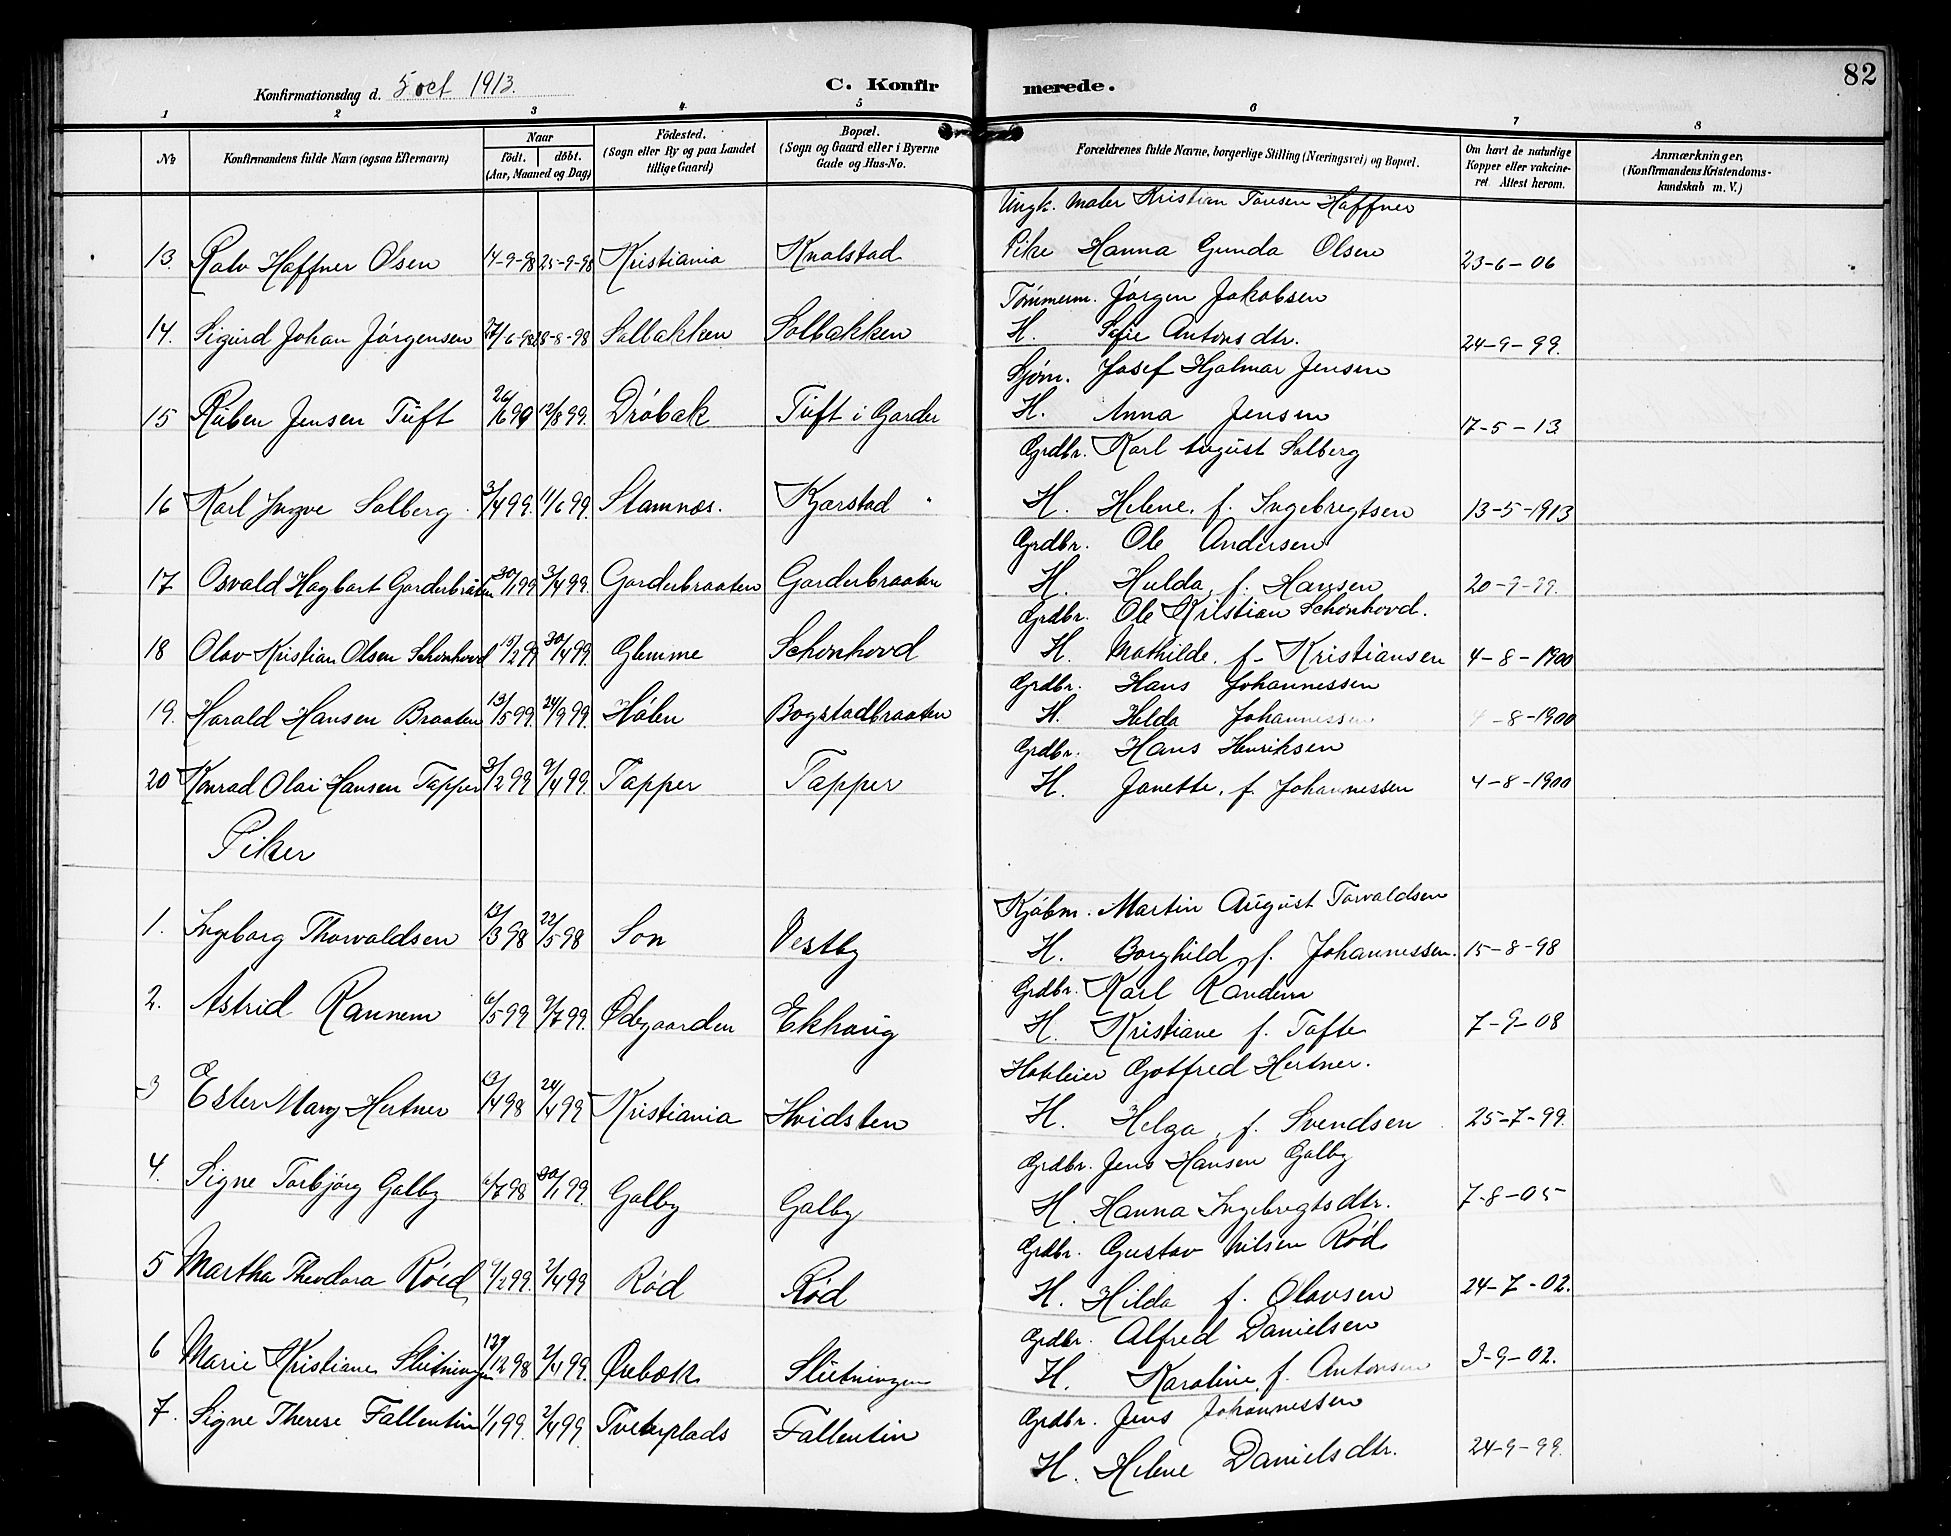 82
Konfirmationsdag d. 5 oct 1913.
C. Konfirmerede.
1 2 3 4 5 6 7 8
№
Konfirmandens fulde Navn (ogsaa Efternavn)
Naar
födt. döbt.
(Aar, Maaned og Dag)
Födested.
(Sogn eller By og paa Landet
tillige Gaard)
Bopæl.
(Sogn og Gaard eller i Byerne
Gade og Hus-No.
Forældrenes fulde Navne, borgerlige Stilling (Næringsvei) og Bopæl.
Om havt de naturlige
Kopper eller vakcine-
ret Attest herom.
Anmærkninger.
(Konfirmandens Kristendoms-
kundskab m. V.)
Ungk. Maler Kristian Tovsen Haffner
13. Ralv Haffner Olsen 14-9-98 25-9-98 Kristiania Knalstad Pike Hanna Gunda Olsen 23-6-06
Tömmerm. Jörgen Jakobsen
14. Sigurd Johan Jörgensen 27/6-98 28-8-98 Solbakken Solbakken H. Sofie Antonsdtr. 24-9-99.
Sjöm. Josef Hjalmar Jensen
15 Ruben Jensen Tuft 26/6 99 12/8 99. Dröbak Tuft i Garder H. Anna Jensen 17-5-13
Grdbr. Karl August Solberg
16 Karl Yngve Solberg 3/4 99. 11/6 99. Stamnæs. Kjærstad H. Helene. f. Ingebregtsen 13-5-1913
Grdbr. Ole Andersen
17 Osvald Hagbart Garderbråten 30/1 99 3/4 99. Garderbraaten Garderbraaten H. Hulda, f. Hansen 20-9-99.
Grdbr. Ole Kristian Schönhovd.
18 Olav Kristian Olsen Schönhovd 15/2 99 30/4 99. Glemme Schönhovd H. Mathilde. f. Kristiansen 4-8-1900
Grdbr. Hans Johannessen
19. Harald Hansen Braaten 13/5 99. 24/9 99. Hölen Bogstadbraaten H. Hilda Johannessen 4-8-1900
Grdbr. Hans Henriksen
20 Konrad Olai Hansen Tapper 3/2 99 9/4 99. Tapper Tapper H. Janette. f. Johannessen 4-8-1900
Piker
Kjöbm. Martin August Torvaldsen
1. Ingeborg Thorvaldsen 13/3 98 22/5 98 Son Vestby H. Borghild f. Johannessen. 15-8-98
Grdbr. Karl Randem
2. Astrid Rannem 6/5 99 9/7 99. Ödegaarden Ekhaug H. Kristiane f. Tofte 7-9-08
Hoteleier Gotfred Hertner.
3 Ester Mary Hertner 13/4 98 24/4 99 Kristiania Hvidsten H. Helga, f. Svendsen 25-7-99.
Grdbr. Jens Hansen Galby
4. Signe Torbjörg Galby 6/7 98 30/1 99. Galby Galby H. Hanna Ingebregtsdtr. 7-8-05
Grdbr. Gustav Nilsen Röd
5 Martha Theodora Röed 9/2 99. 2/4 99 Röd Röd H. Hilda f. Olavsen 24-7-02.
Grdbr. Alfred Danielsen
6 Marie Kristiane Slutningen 12/12 98 2/4 99. Övebæk Slutningen H. Karoline, f. Antonsen 3-9-02.
Grdbr. Jens Johannessen
7. Signe Therese Fallentin 1/1 99. 2/4 99. Tveterplads Fallentin H. Helene Danielsdtr. 24-9-99.